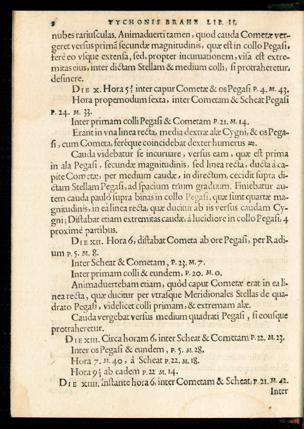 2 TYCHONIS BRAHE LIB. II.
nubes rariusculas. Animaduerti tamen, quod cauda Cometæ ver-
geret versus primã secundæ magnitudinis, quæ est in collo Pegasi,
ferè eo vsque extensa, sed, propter incuruationem, visa est extre-
mitas eius, inter dictam Stellam & medium colli, si protraheretur,
desinere.
DIE X. Hora 5 inter caput Cometæ & os Pegasi P. 4. M. 43.
Hora propemodum sexta, inter Cometam & Scheat Pegasi
P. 24. M. 33.
Inter primam colli Pegasi & Cometam P. 21. M. 14.
Erant in vna linea recta, media dextræ alæ Cygni, & os Pega-
si, cum Cometa, ferèque coincidebat dexter humerus
Cauda videbatur se incuruare, versus eam, quæ est prima
in ala Pegasi, secundæ magnitudinis, sed linea recta, ducta à ca-
pite Cometæ, per medium caudæ, in directum, cecidit supra di-
ctam Stellam Pegasi, ad spacium trium graduum. Finiebatur au-
tem cauda paulò supra binas in collo Pegasi, quæ sunt quartæ ma-
gnitudinis, in ea linea recta, quæ ducitur ab iis versus caudam Cy-
gni; Distabat etiam extremitas caudæ, à lucidiore in collo Pegasi, 4
proximè partibus.
DIE XII. Hora 6, distabat Cometa ab ore Pegasi, per Radi-
um P. 5. M. 8.
Inter Scheat & Cometam, P. 23. M. 7.
Inter primam colli & eundem, P. 20. M. 0.
Animaduertebam etiam, quòd caput Cometæ erat in ea li-
nea recta, quæ ducitur per vtrasque Meridionales Stellas de qua-
drato Pegasi, videlicet colli primam, & extremam alæ.
Cauda vergebat versus medium quadrati Pegasi, si eousque
protraheretur.
DIE XIII. Circa horam 6, inter Scheat & Cometam P. 22. M. 23.
Inter os Pegasi & eundem, P. 5. M. 28.
Hora 7. M. 40, à Scheat P. 22. M. 18.
Hora 9 ab eadem P. 22 M. 14.
DIE XIIII. instante hora 6, inter Cometam & Scheat, P. 21. M. 42.
Inter